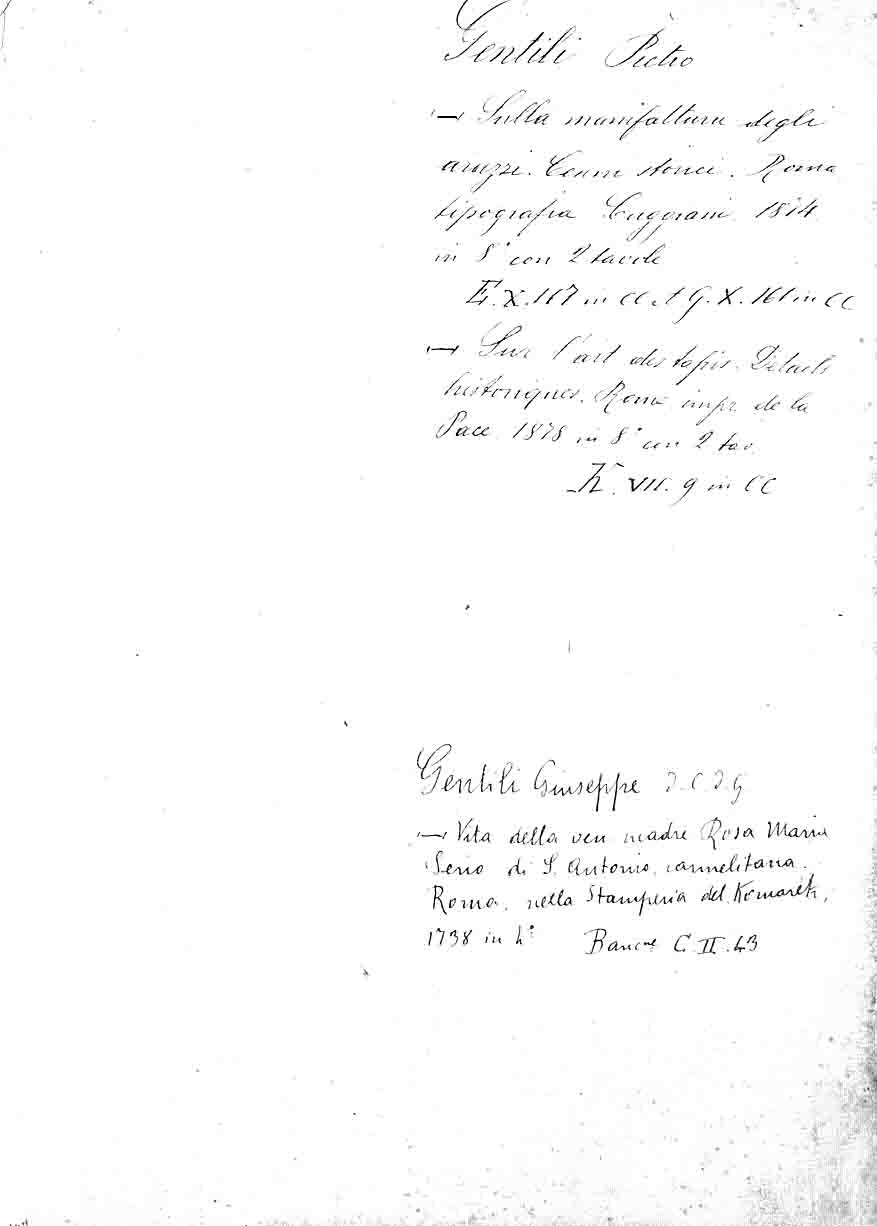 Gentili Pietro
— Sulla manifattura degli
arazzi. Cenni storici. Roma
tipografia Cuggiani 1874
in 8° con 2 tavole
E. X. 167 in CC et G. X. 161 in CC
— Sur l'art des tapis. Détails
historiques. Rome impr. de la
Pace. 1878 in 8° con 2 tav.
K. VII. 9 in CC
Gentili Giuseppe d. C. d. G.
— Vita della ven madre Rosa Maria
Serio di S. Antonio, carmelitana.
Roma. nella Stamperia del Komarek,
1738 in 4° Banc.ne C. II. 43